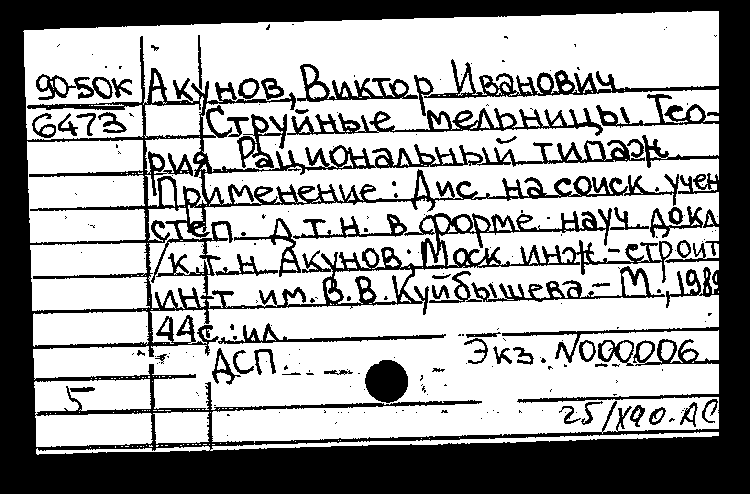 90-50К Акунов, Виктор Иванович
6473 Струйные мельницы. Тео-
рия. Рациональный типаж.
Применение: Дис. на соиск. учен
степ. д.т.н. в форме науч. докл
/к.т.н Акунов; Моск. инж.-строит
ин-т им. В.В.Куйбышева.- М., 1989
44с.:ил.
ДСП. Экз. N000006.
5
25/X90. АС